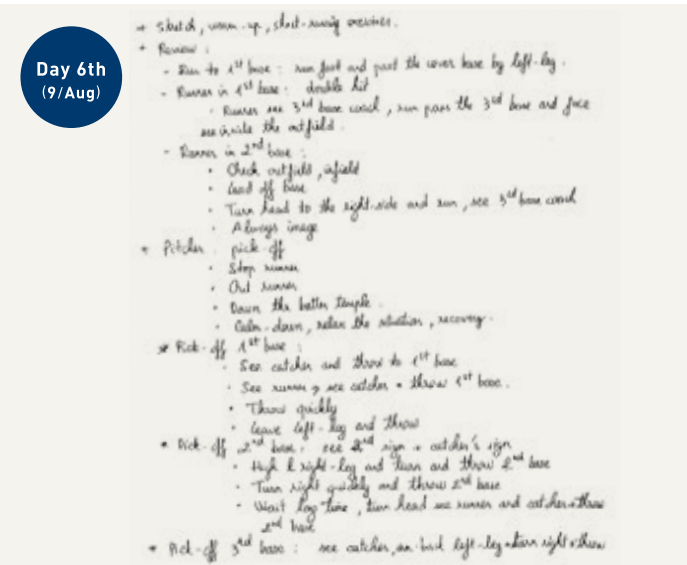 Day 6th
(9/Aug)
+ Stretch, warm-up, short-running exercises.
+ Review :
- Run to 1st base : run foot and past the cover base by left-leg.
- Runner in 1st base : double hit
• Runner see 3rd base coach, run pass the 3rd base and face
see inside the outfield.
- Runner in 2nd base :
• Check outfield, infield
• Lead off base
• Turn head to the right-side and run, see 3rd base coach
• Always image
+ Pitcher : pick-off
• Stop runner
• Out runner
• Down the batter
• Calm-down, relax the situation, recovery.
* Pick-off 1st base :
• See catcher and throw to 1st base
• See runner → see catcher + throw 1st base.
• Throw quickly
• Leave left-leg and throw
* Pick-off 2nd base : see 2nd sign + catcher's sign
• High right-leg and turn and throw 2nd base
• Turn right quickly and throw 2nd base
• Wait long time, turn head see runner and catcher+throw
2nd base
* Pick-off 3rd base : see catcher, left-leg+turn right+throw